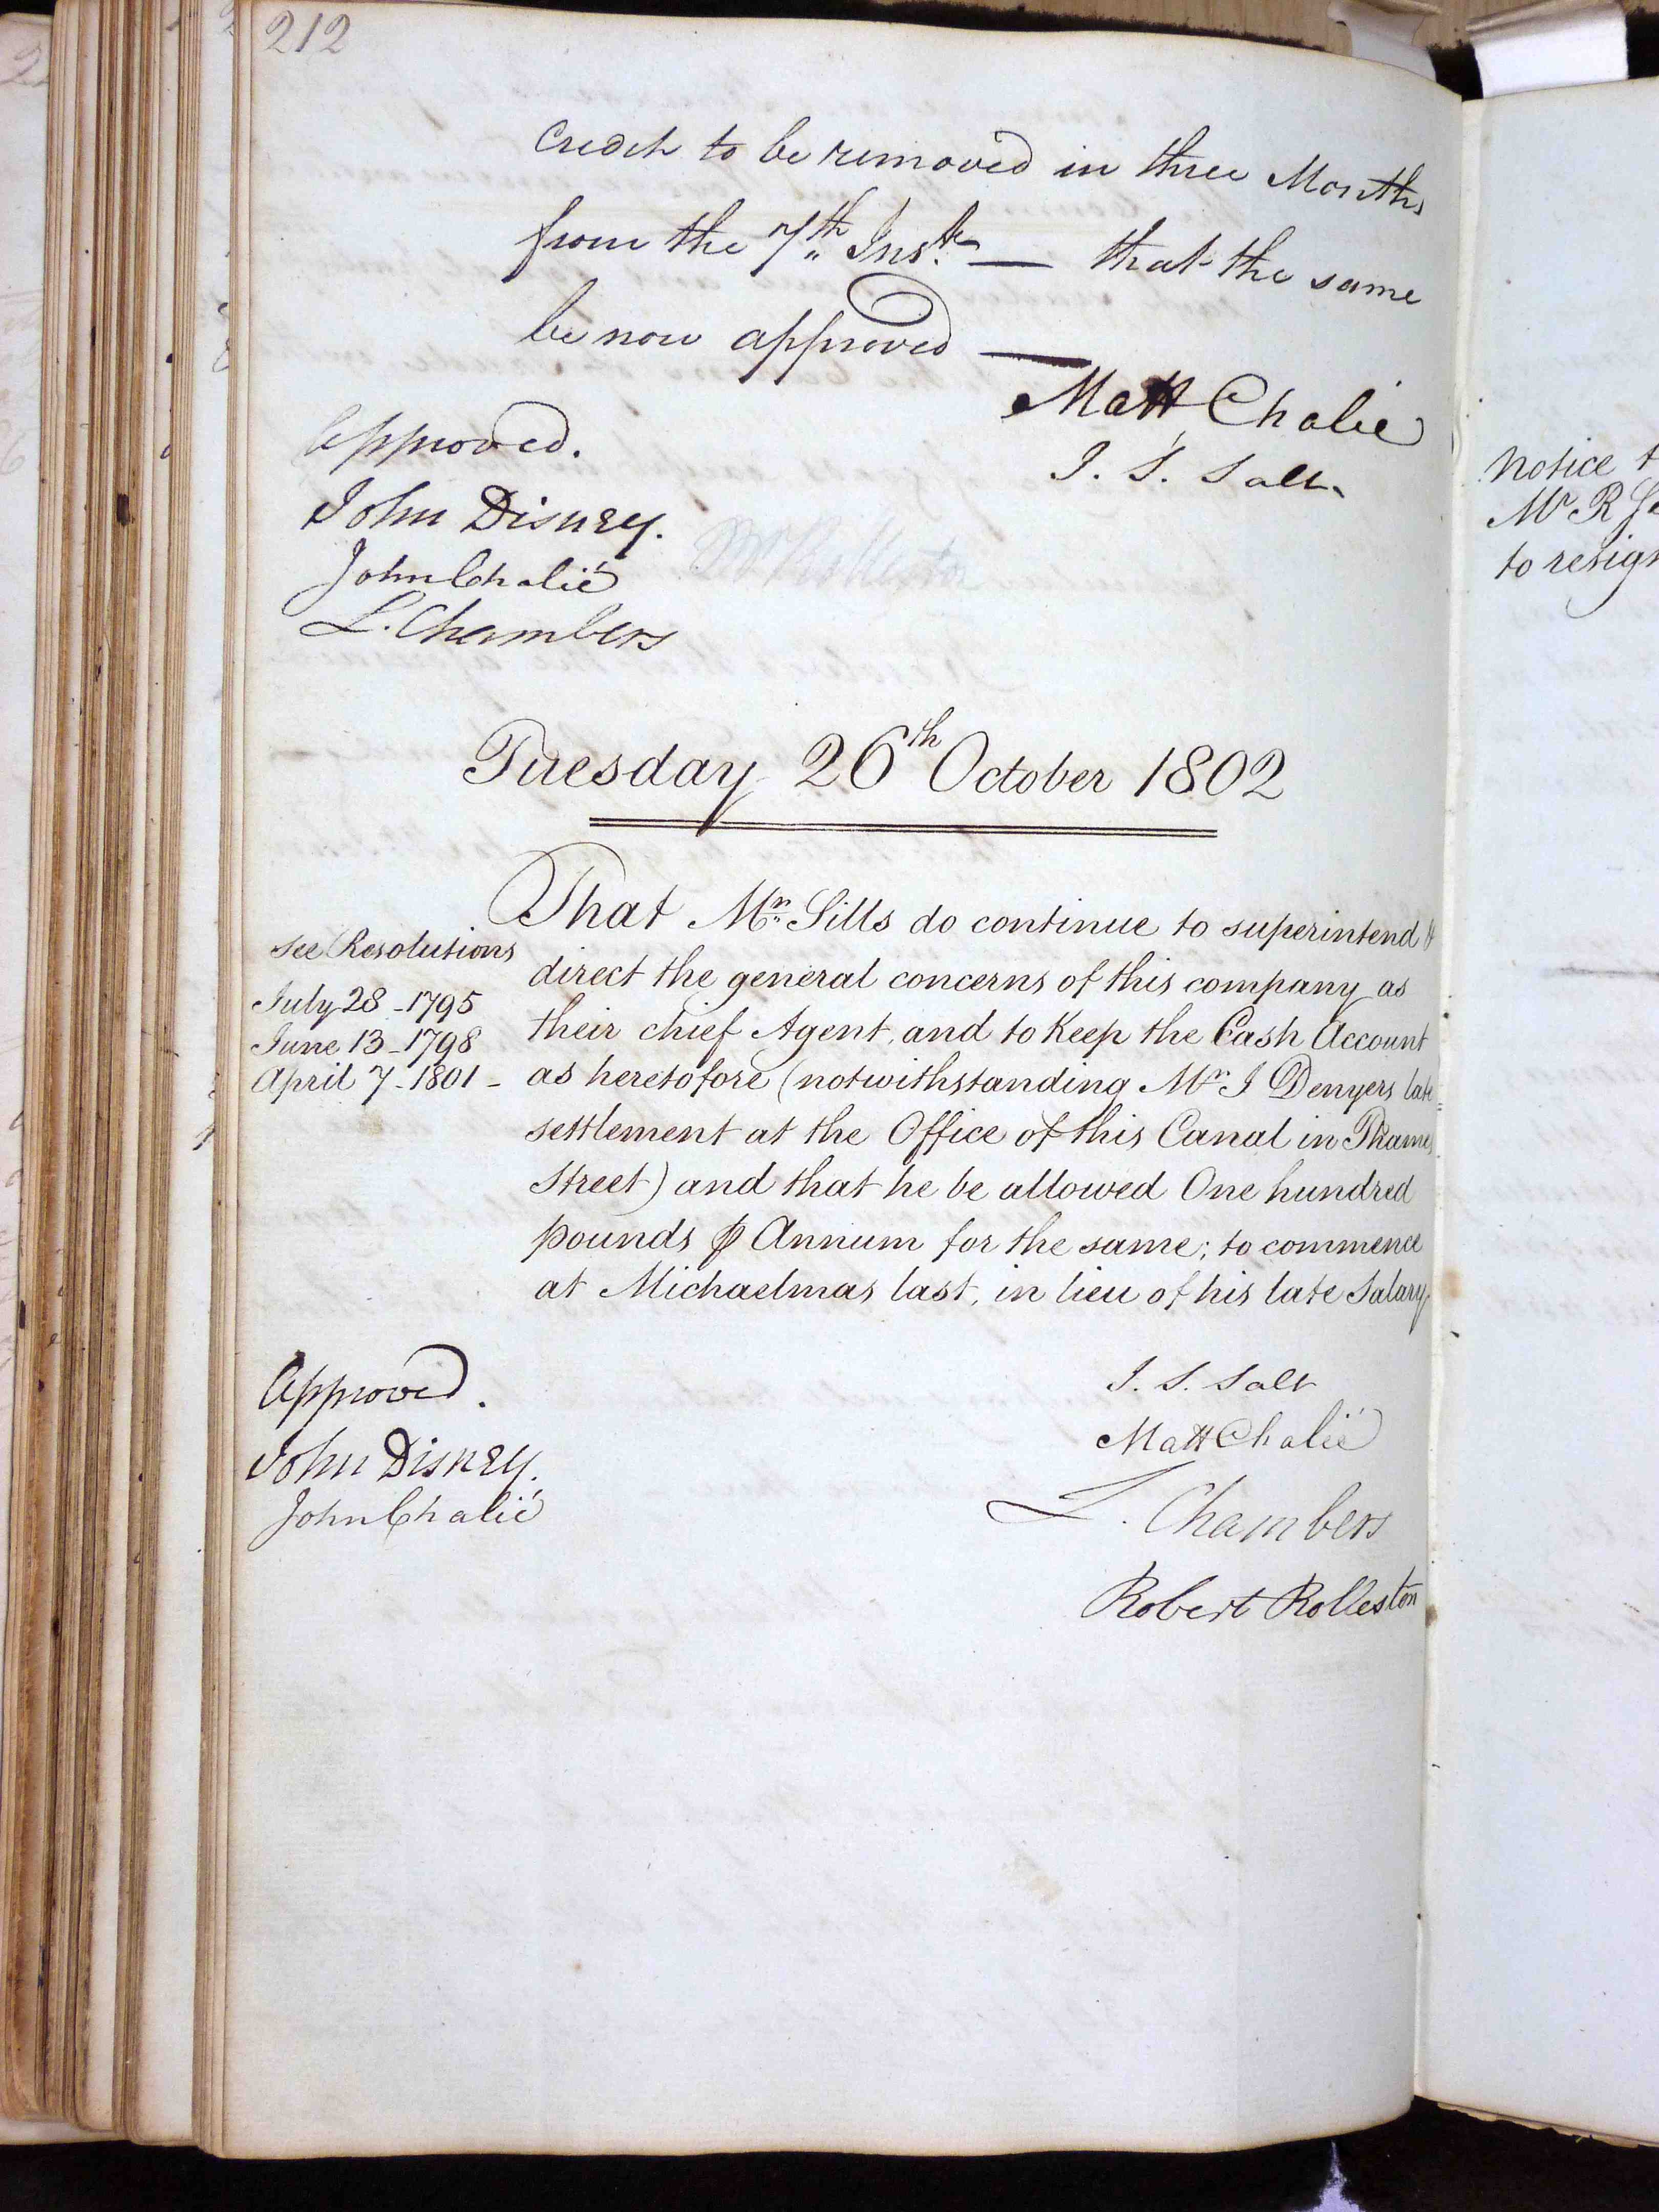 212
Credit to be removed in three Months
from the 7th Inst. — that the same
be now approved —
Matt Chalié
J. S. Salt
Approved.
John Disney.
John Chalié
L. Chambers
Mr Rolleston
Tuesday 26th October 1802
That Mr. Sills do continue to superintend &
direct the general concerns of this company as
their chief Agent, and to Keep the Cash Account
as heretofore (notwithstanding Mr. J Denyers late
settlement at the Office of this Canal in Thames
Street) and that he be allowed One hundred
pounds ⅌ Annum for the same; to commence
at Michaelmas last, in lieu of his late Salary,
see Resolutions
July 28 - 1795
June 13 - 1798
April 7 - 1801 -
J. S. Salt
Matt Chalié
L. Chambers
Robert Rolleston
Approved.
John Disney.
John Chalié
Notice
Mr R
to resign